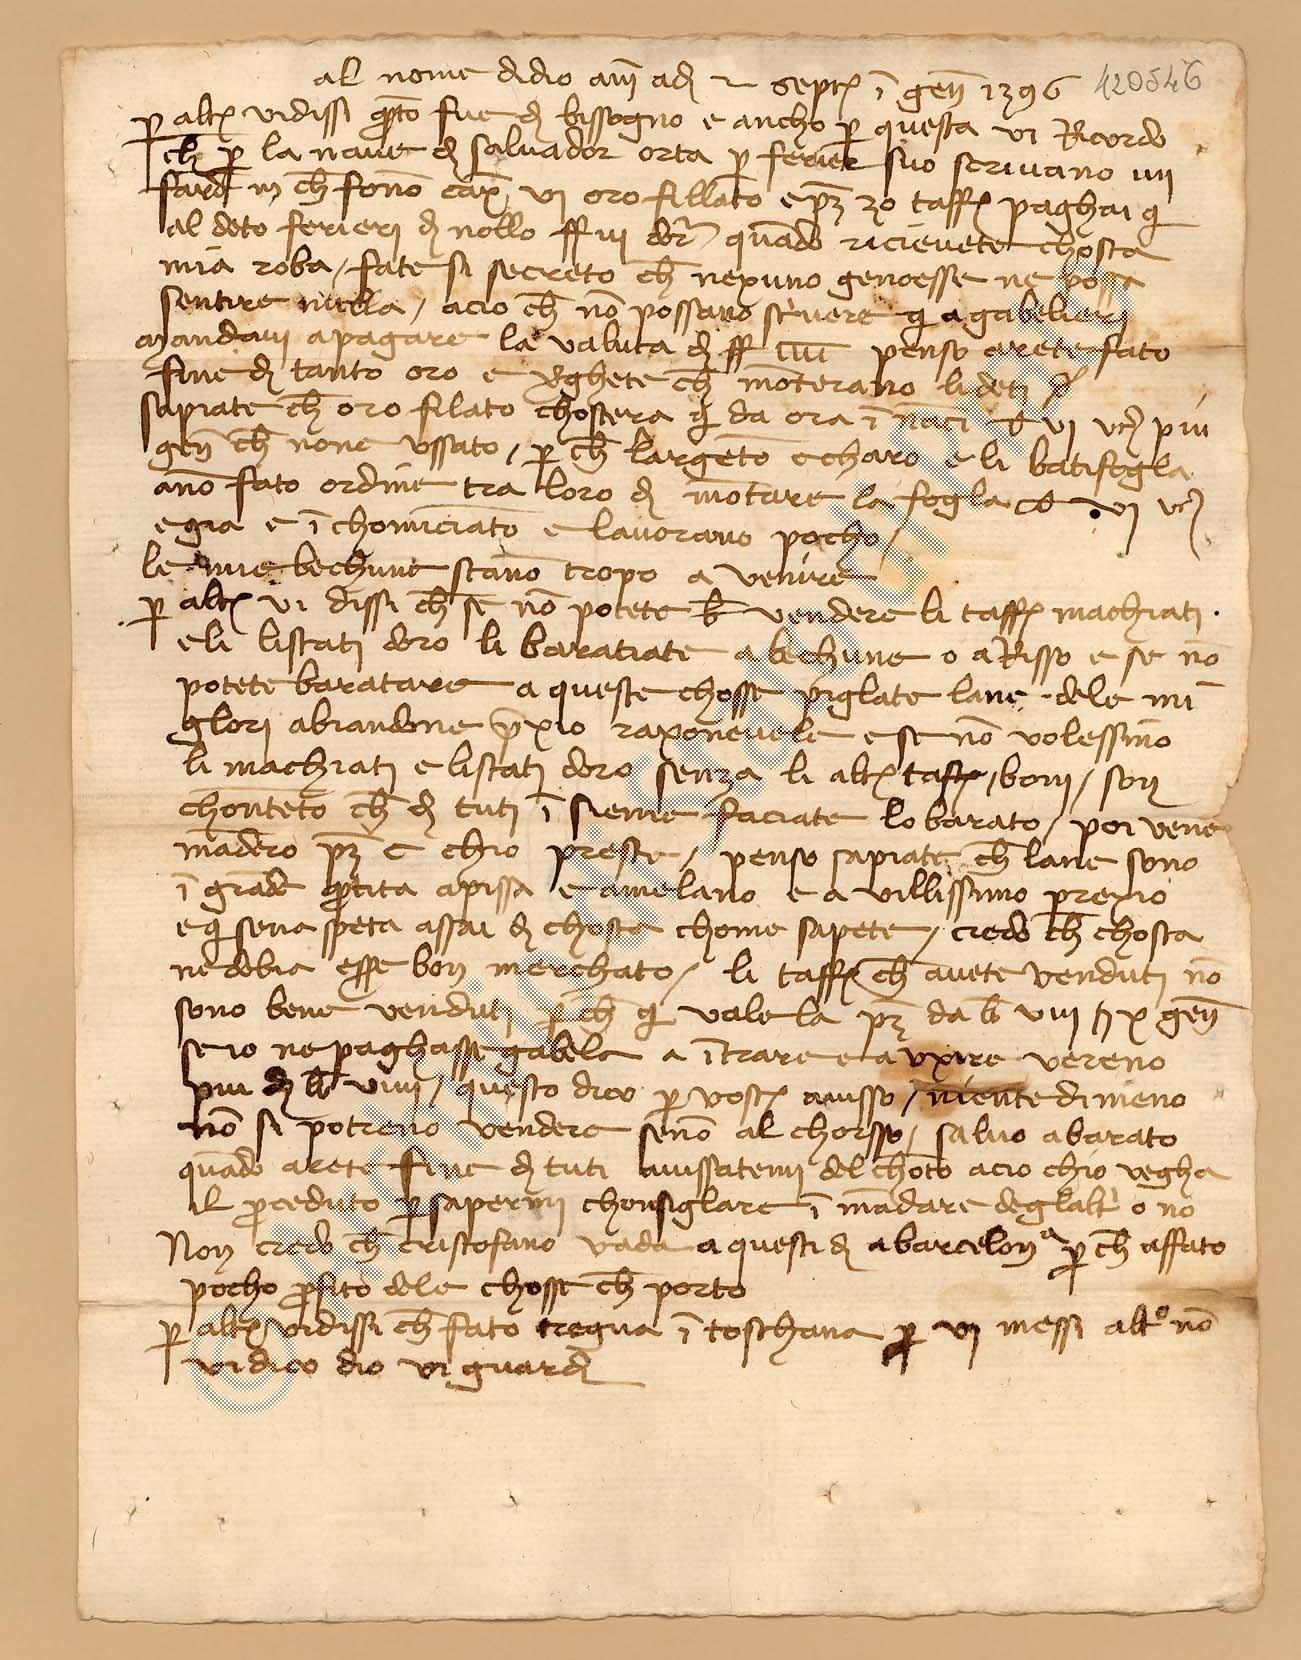 al nome didio am̄ adj 2 septꝭ ī gen̄ 1396 420546
ꝑ altꝭ vi dissi qͣto fue dj bissogno e ancho ꝑ questa vi Ricordo
ch̄ ꝑ la nave dj salvador orta ꝑ ferier suo scrivano iiii
fard ch̄ sonō vi oro fillato e pz̄ 20 taffꝭ paghai q̄
al deto ferieri dj nollo ff vi quādo ricievete chosta
mia roba / fate si secreto ch̄ nexuno genoesse ne possa
sentire nulla / acio ch̄ nō possano scrivere q̄ a gabelieri
mandavi a pagare la valuta dj ff penso arete fato
fine dj tanto oro e ch̄ mōterano li deti
sapiate ch̄ oro filato chostera q̄ da ora ī nācī vj piu
gen̄ ch̄ none ussato / ꝑ ch̄ largēto e charo e li batifogla
anō fato ordine tra loro dj mōtare la fogla vj
e gia e ī chominciato e lavorano pocho /
le mie bechune stanō tropo a venire
ꝑ altꝭ vi dissi ch̄ se nō potete vendere li taffꝭ machiati
e li liscati doro li baratiate a bechune o a Risso e se nō
potete baratare a queste chosse piglate lane dele mi
glori abiandone p̄xio raxonevele e se nō volessino
li machiati e liscati doro senza li altꝭ taffꝭ / boni / son
chontēto ch̄ dj tuti ī sieme faciate lo barato / poi vene
māderō pz̄ c chio preste / penso sapiate ch̄ lane sono
ī grāde ꝑtita a pissa e a melano e a villissimo prexio
e q̄ sena speta assai dj chosta chome sapete / credo ch̄ chosta
ne dobia esse bon merchato / li taffꝭ ch̄ avete venduti nō
sono bene vendutj ꝑ ch̄ q̄ vale la pz̄ da viii x gen̄
se io ne paghasse gabela a ītrare e a uxire vereno
piu dj viiii / questo dico ꝑ vostꝭ avisso / niente di meno
nō si potreno vendere senō al chorsso / salvo a barato
quādo arete fine dj tuti avissatemi del chōto acio chio vegha
il ꝓceduto ꝑ sapermi chonsiglare ī mādare deglalt o no
Non credo ch̄ cristofano vada a questi dj a barcelonᵃ ꝑ ch̄ affato
pocho ꝓfito dele chosse ch̄ porto
ꝑ altꝭ vi dissi ch̄ fato tregua ī toschana ꝑ vi messi altº nō
vi dico dio vi guardj